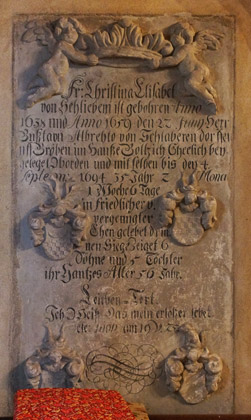 Fr: Christina Elisabet
von Schliebem ist gebohren Anno
1638 und Anno 1659 den 22 Juny Herr
Gustavu Albrecht von Schlaberen dor
uff Gröben im Hauße Ehelich bey
geleget worden und mit selben bis den 4
Septem 1694 35 Jahr 2 Mona
1 Woche 6 Tage
in friedlicher u.
vergnügter
Ehen gelebet
nen gezeiget 6
Söhne und 5 Töchter
ihr Hantzes Alter 56 Jahr.
Leuhen-Text.
Ich Weiß das mein erlöser lebet
etc am 19 V. 25